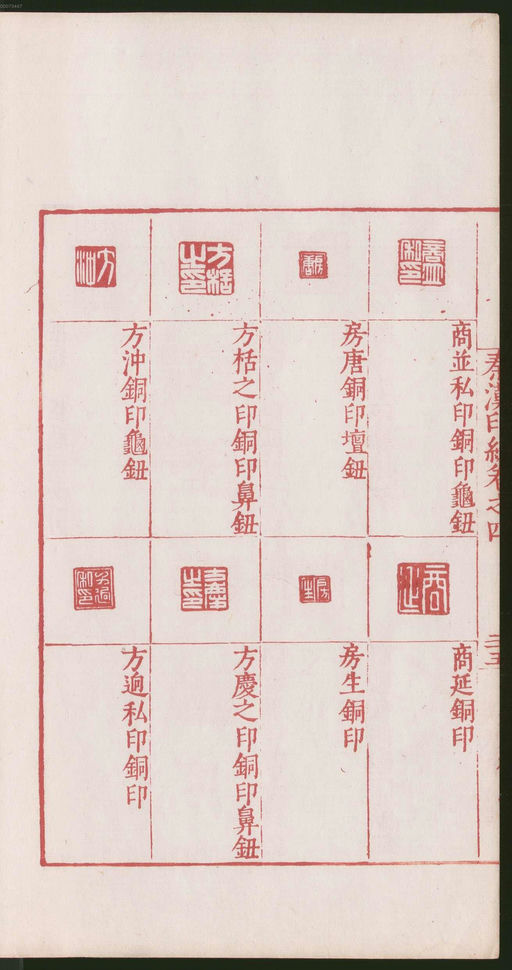 秦漢印統卷之四
三五
商並私印銅印龜鈕
房唐銅印壇鈕
方栝之印銅印鼻鈕
方沖銅印龜鈕
商延銅印
房生銅印
方慶之印銅印鼻鈕
方逈私印銅印